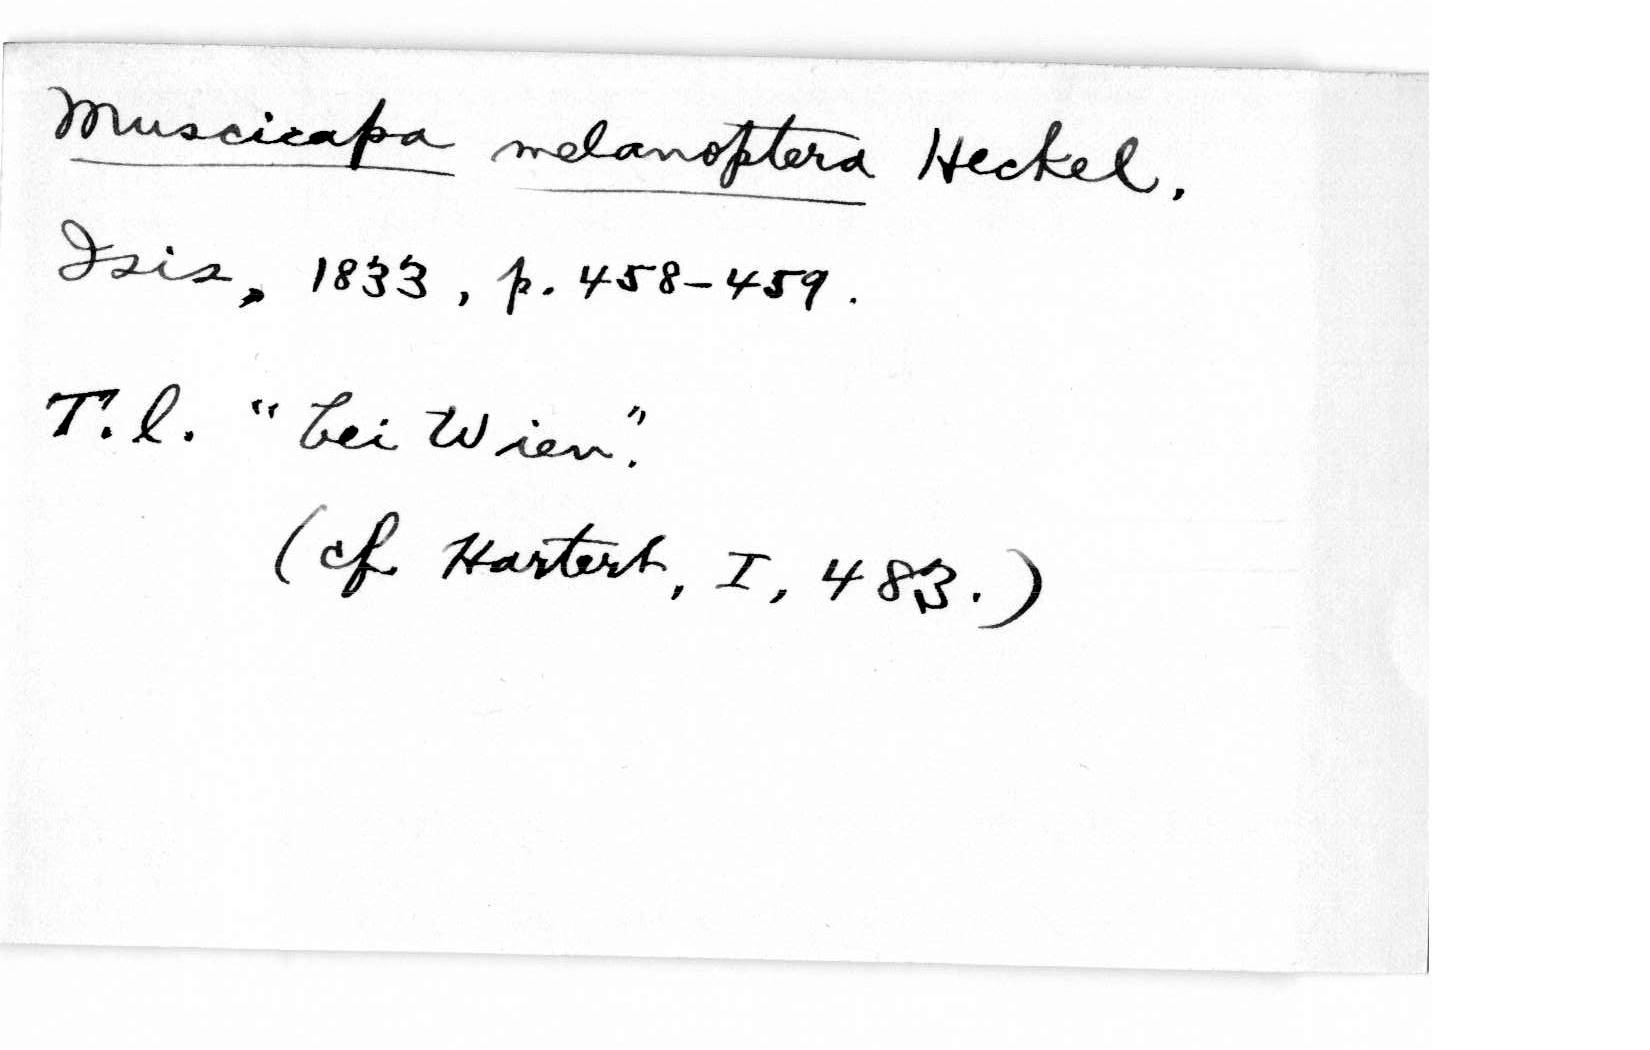 Muscicapa melanoptera Heckel,
Isis, 1833, p. 458-459.
T. l. "bei Wien".
(cf Hartert, I, 483.)